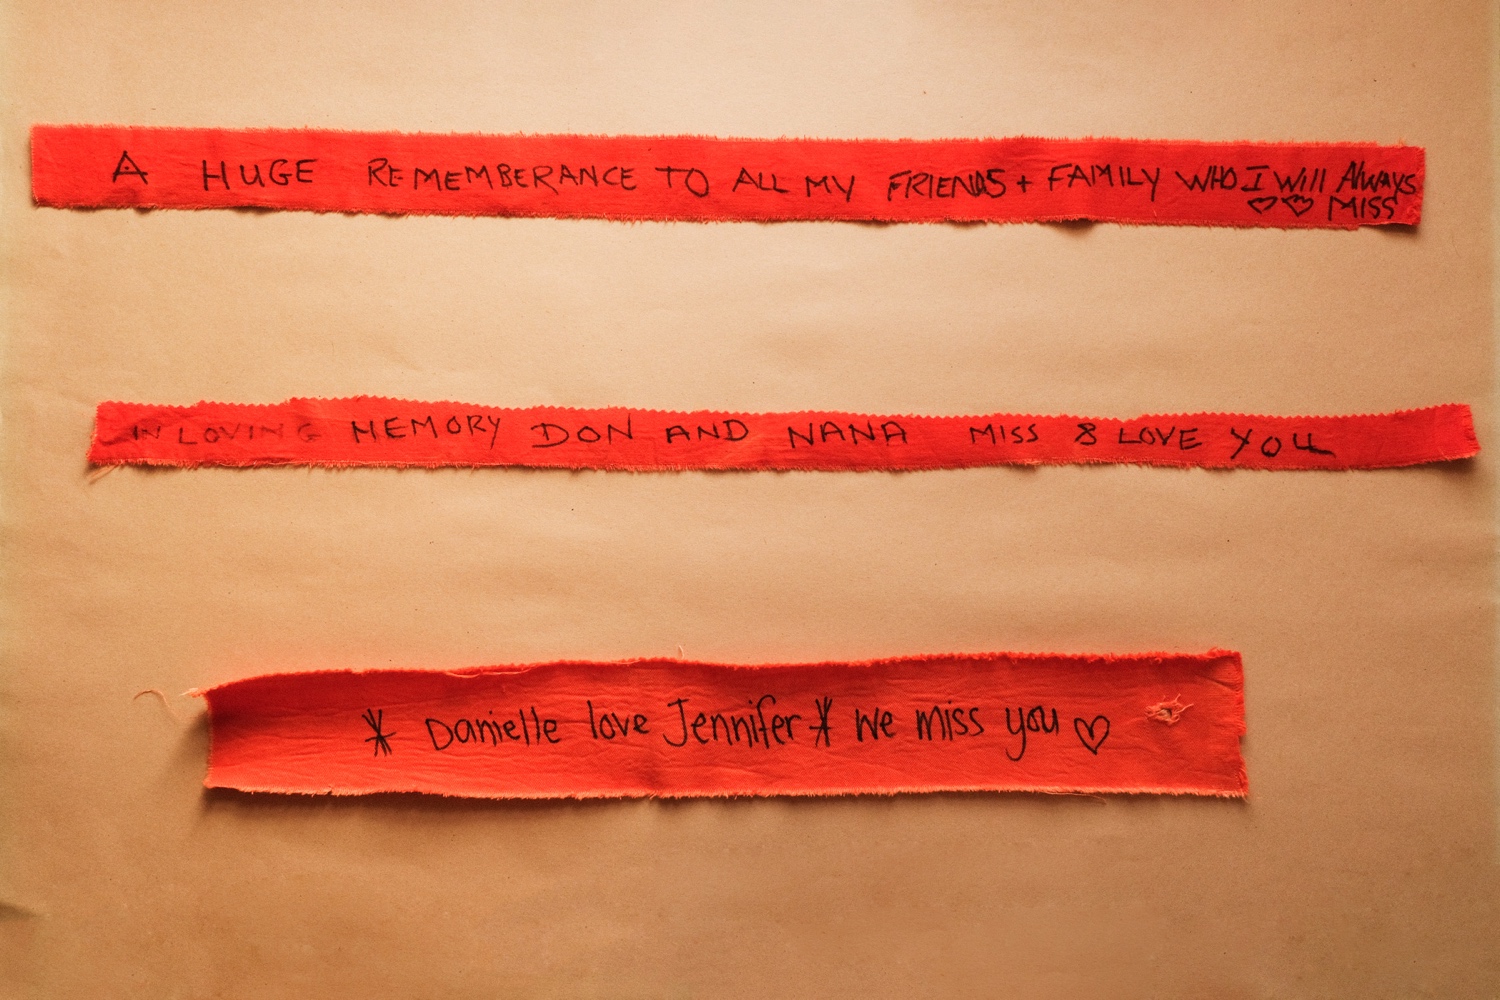 A HUGE REMEMBERANCE TO ALL MY FRIENDS + FAMILY WHO I Will Always
♡♡ MISS
IN LOVING MEMORY DON AND NANA MISS & LOVE YOU
* Danielle love Jennifer * We miss you ♡